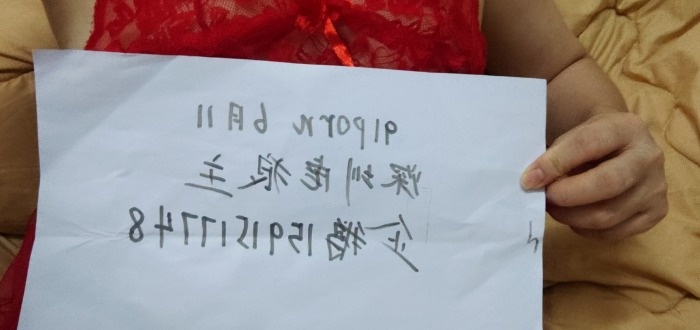 91porn 6月11
深圳老狼主
企鹅1591517748